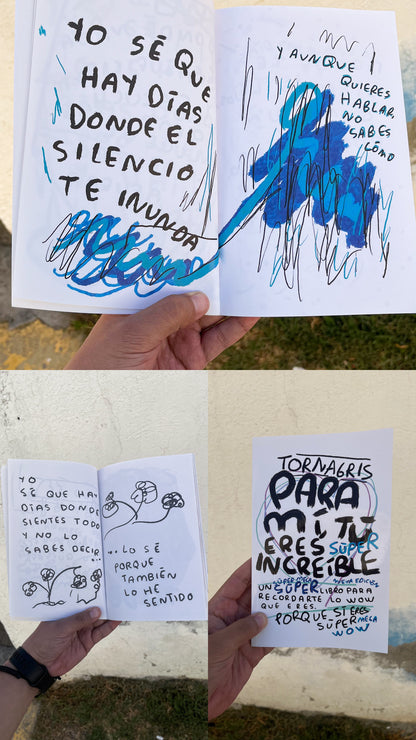 YO SÉ QUE
HAY DÍAS
DONDE EL
SILENCIO
TE INUNDA
Y AUNQUE
QUIERES
HABLAR,
NO
SABES
CÓMO
YO
SÉ QUE HAY
DÍAS DONDE
SIENTES TODO
Y NO LO
SABES DECIR
...
... LO SÉ
PORQUE
TAMBIÉN
LO HE
SENTIDO
TORNAGRIS
PARA
MÍ TÚ
ERES SÚPER
INCREÍBLE
UN SÚPER LIBRO PARA
RECORDARTE LO WOW
QUE ERES.
PORQUE SÍ ERES
SÚPER MEGA
WOW